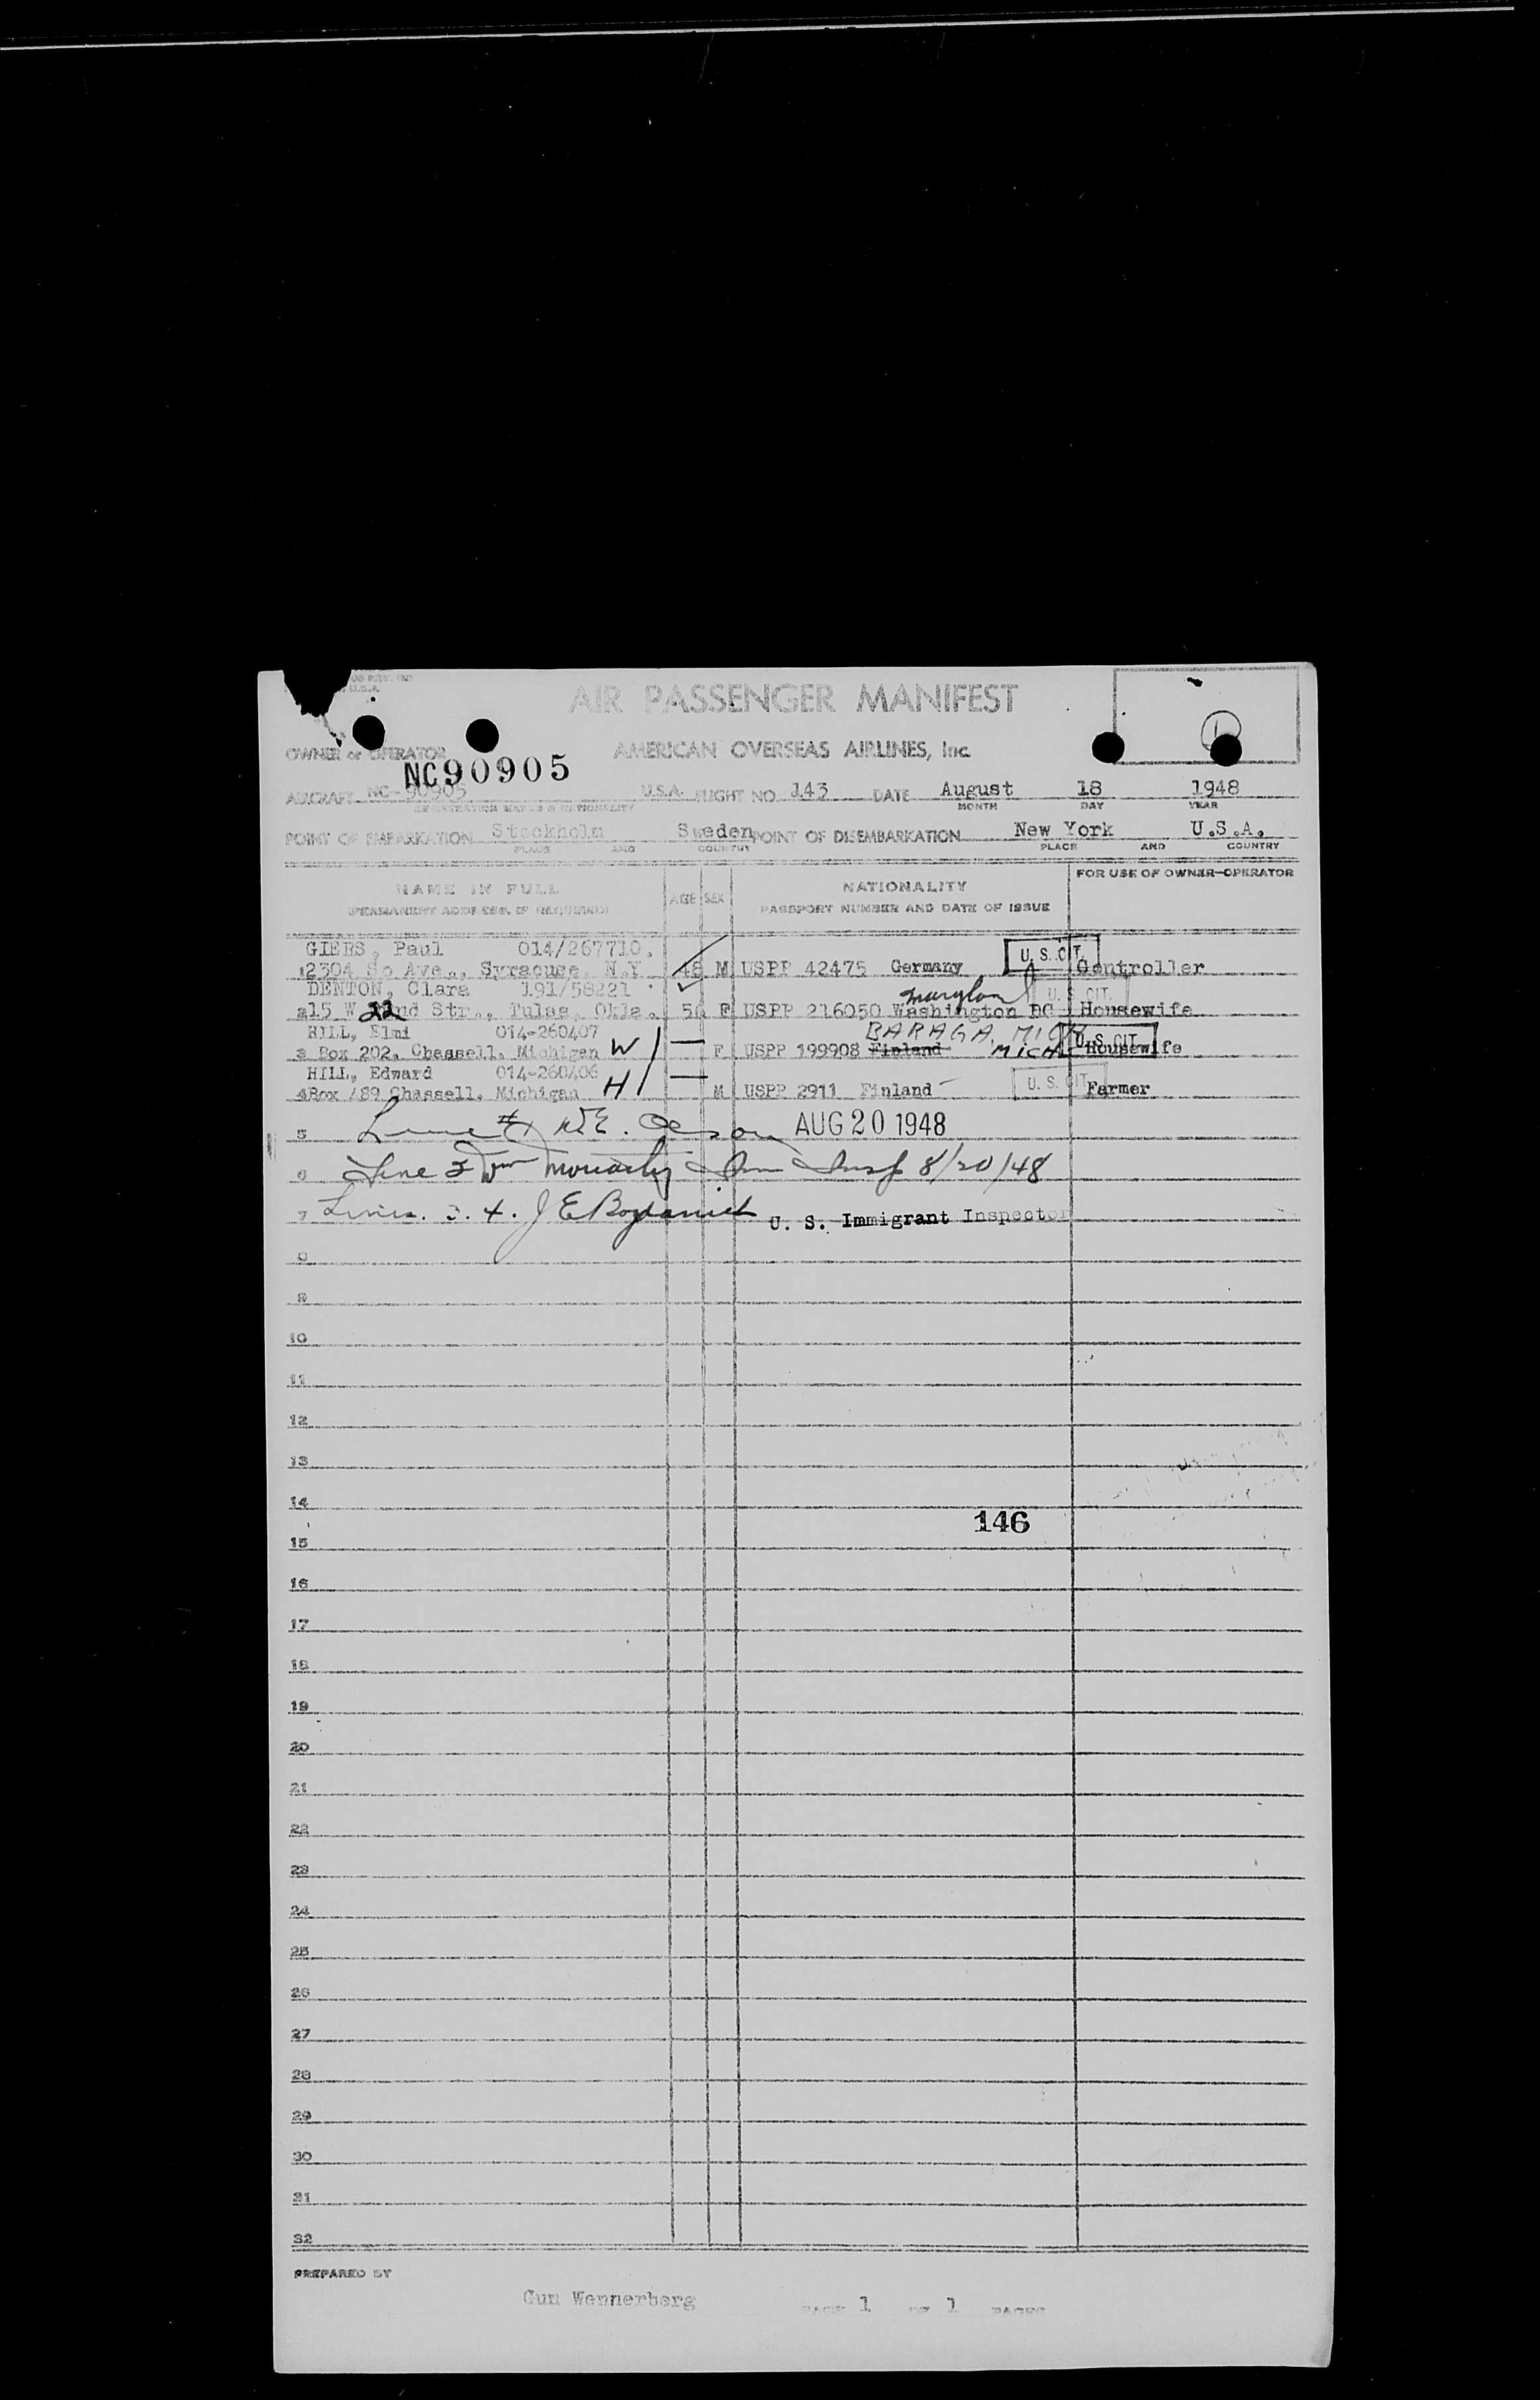 AIR PASSENGER MANIFEST
OWNER or OPERATOR AMERICAN OVERSEAS AIRLINES, Inc.
NC90905
AIRCRAFT NC-90905 U.S.A. FLIGHT NO. 143 DATE August 18 1948
REGISTRATION MARKS & NATIONALITY MONTH DAY YEAR
POINT OF EMBARKATION Stockholm Sweden POINT OF DISEMBARKATION New York U.S.A.
PLACE AND COUNTRY PLACE AND COUNTRY
NAME IN FULL AGE SEX NATIONALITY FOR USE OF OWNER-OPERATOR
(PERMANENT ADDRESS, IF REQUIRED) PASSPORT NUMBER AND DATE OF ISSUE
GIEBS, Paul 014/267710. U. S. CIT.
1 2304 So Ave., Syracuse, N.Y. 48 M USPP 42475 Germany Controller
DENTON, Clara 191/58221 Maryland U. S. CIT.
2 15 W 22nd Str., Tulsa, Okla. 50 F USPP 216050 Washington DC Housewife
HILL, Elmi 014-260407 BARAGA, MICH U. S. CIT.
3 Box 202, Chassell, Michigan W F USPP 199908 Finland MICH Housewife
HILL, Edward 014-260406 U. S. CIT.
4 Box /89 Chassell, Michigan H M USPP 2911 Finland Farmer
5 Line #1 W.E. Olson AUG 20 1948
6 Line 2 Wm Moriarty Imm Insp 8/20/48
7 Lines. 3. 4. J E Bogdanich U. S. Immigrant Inspector
8
9
10
11
12
13
14
146
15
16
17
18
19
20
21
22
23
24
25
26
27
28
29
30
31
32
PREPARED BY
Gun Wennerberg PAGE 1 OF 1 PAGES